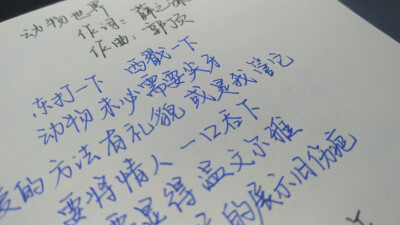 动物世界
作词：薛之谦
作曲：郭顶
东打一下 西戳一下
动物未必需要尖牙
爱的方法有礼貌 或是我管它
要将情人一口吞下
要显得温文尔雅
的展示旧伤疤